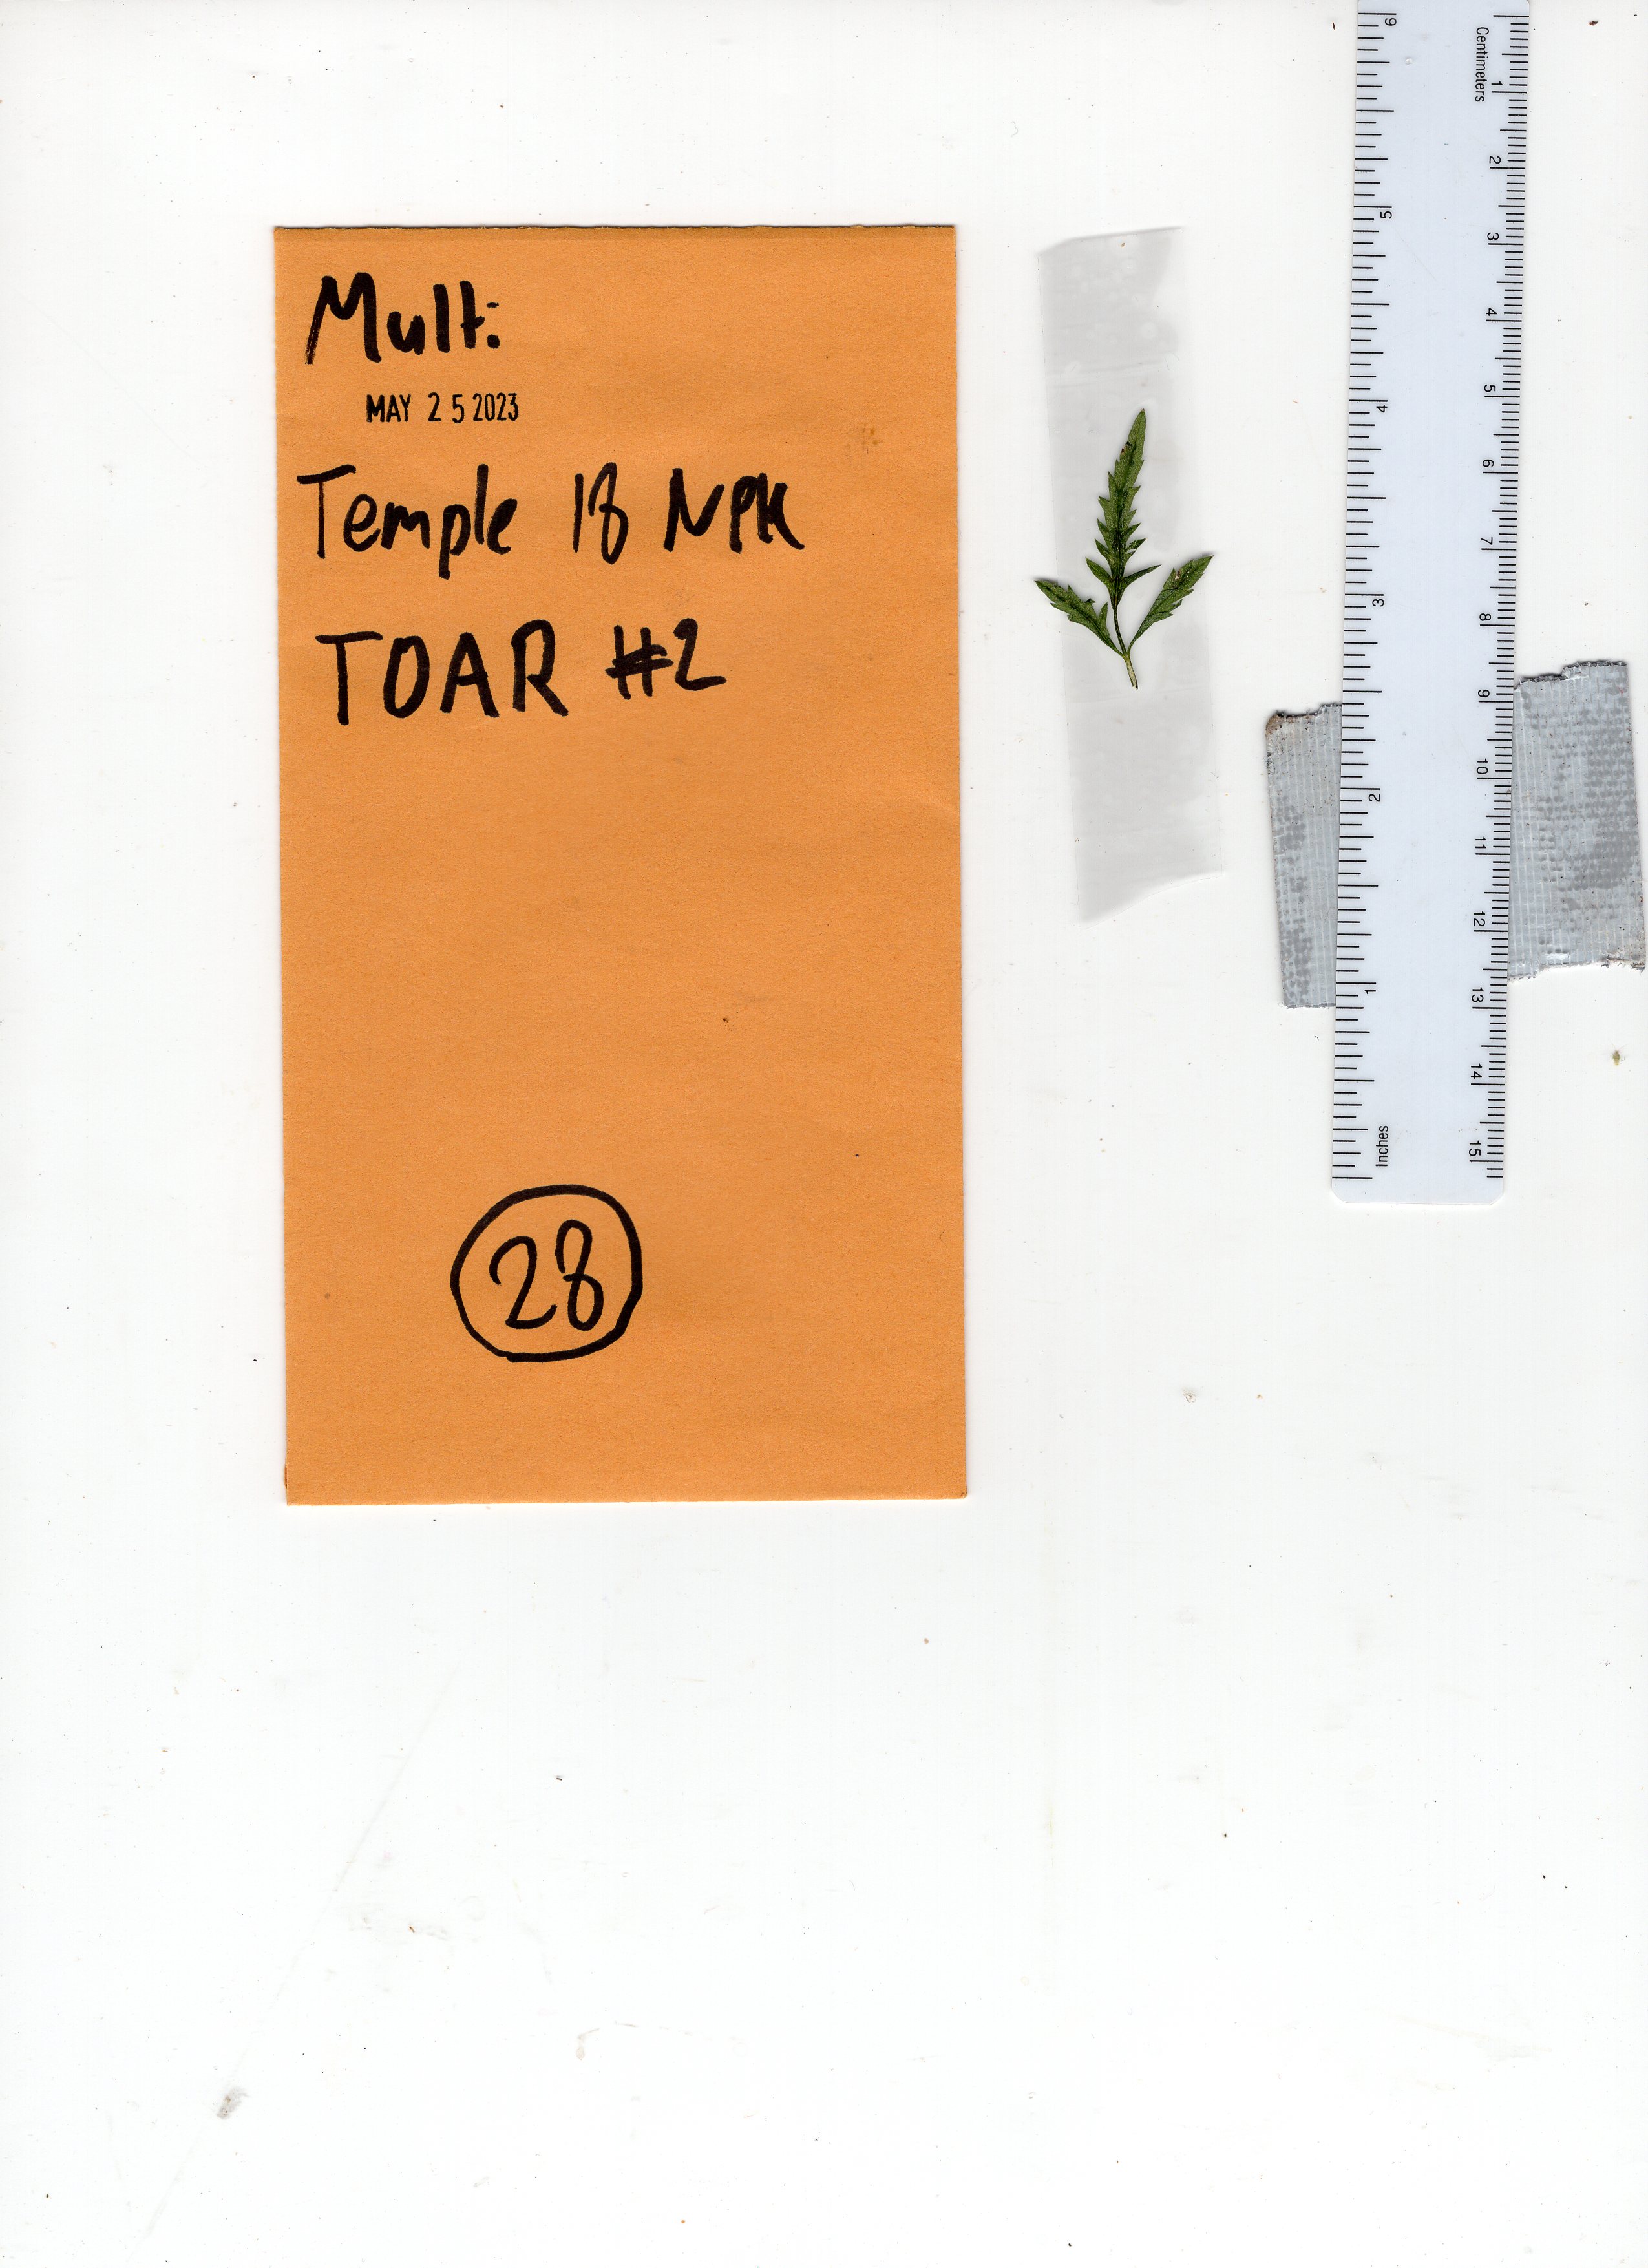 Multi
MAY 25 2023
Temple 18 NPK
TOAR #2
28
Centimeters
1
2
3
4
5
6
7
8
9
10
11
12
13
14
15
6
5
4
3
2
1
Inches